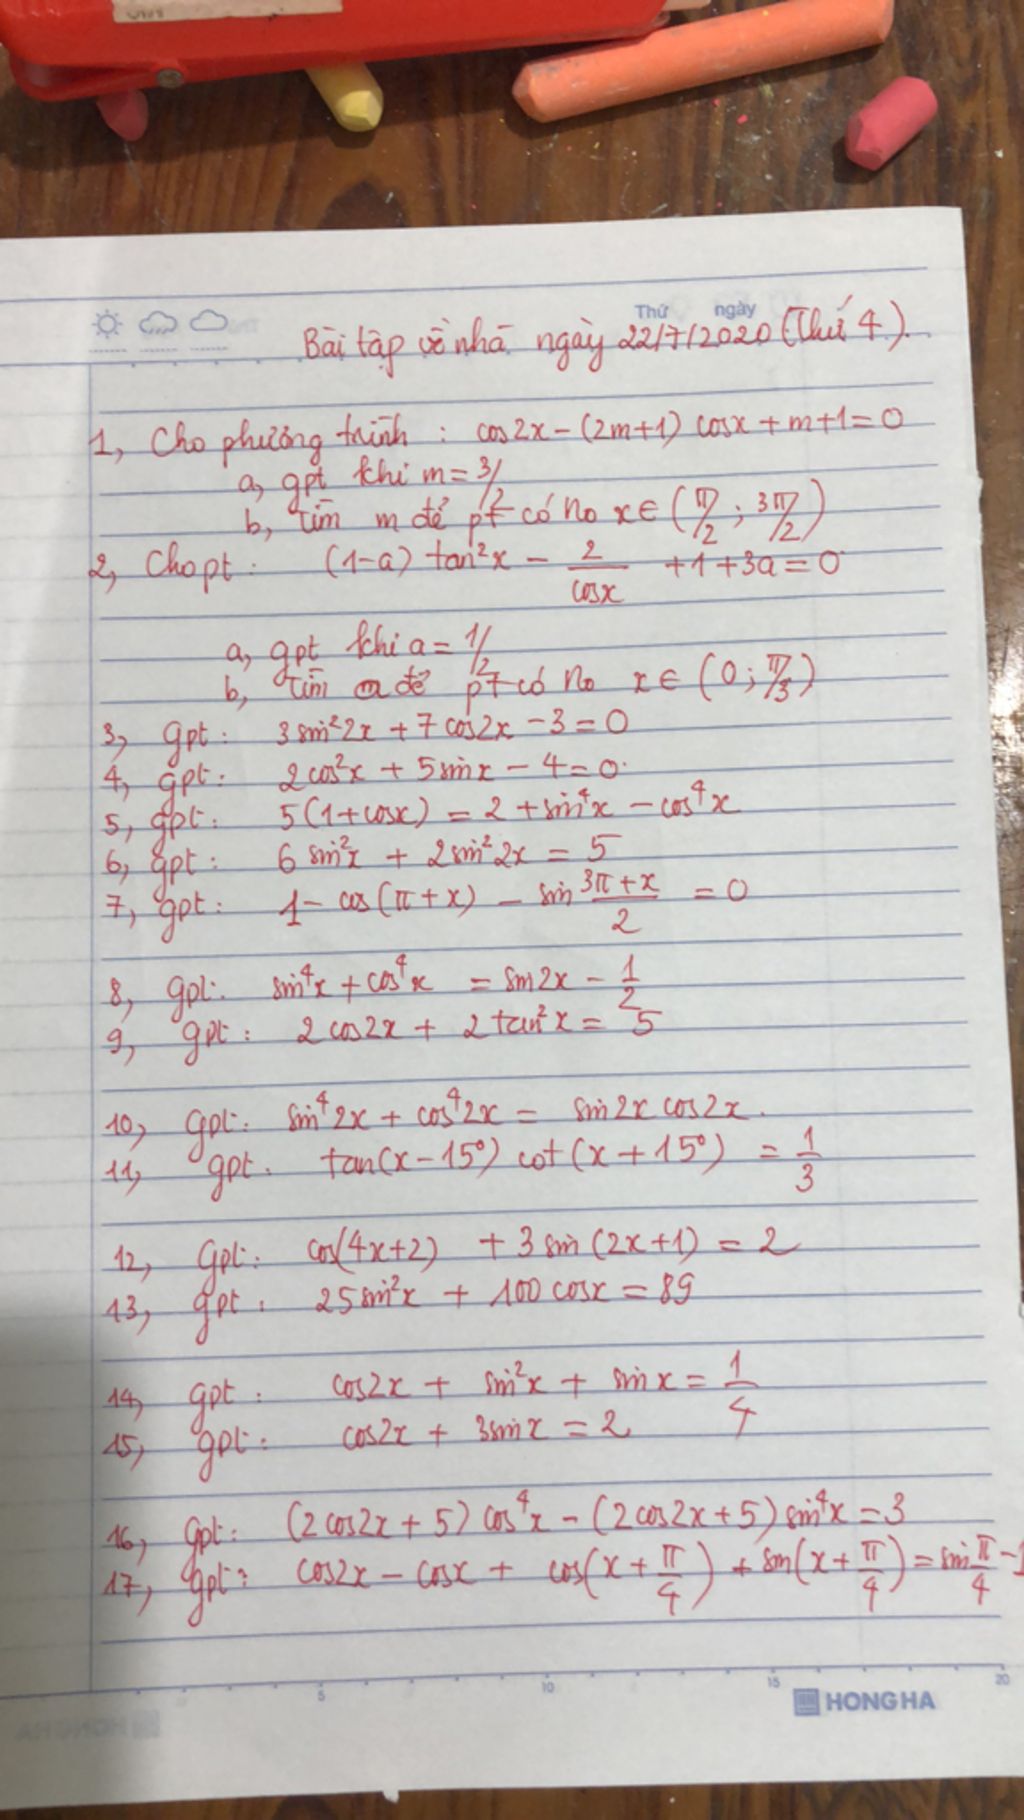 Thứ ngày
Bài tập về nhà ngày 22/7/2020 (Thứ 4).
1, Cho phương trình : cos2x - (2m+1) cosx + m+1 = 0
a, gpt khi m = 3/2
b, Tìm m để pt có no x ∈ (π/2 ; 3π/2)
2, Cho pt : (1-a) tan²x - 2/cosx + 1 + 3a = 0
a, gpt khi a = 1/2
b, Tìm a để pt có no x ∈ (0 ; π/3)
3, gpt : 3sin²2x + 7cos2x - 3 = 0
4, gpt : 2cos²x + 5sinx - 4 = 0
5, gpt : 5(1+cosx) = 2 + sin⁴x - cos⁴x
6, gpt : 6sin²x + 2sin²2x = 5
7, gpt : 1 - cos(π+x) - sin (3π+x)/2 = 0
8, gpt : sin⁴x + cos⁴x = sin2x - 1/2
9, gpt : 2cos2x + 2tan²x = 5
10, gpt : sin⁴2x + cos⁴2x = sin2x cos2x.
11, gpt : tan(x-15°) cot(x+15°) = 1/3
12, gpt : cos(4x+2) + 3sin(2x+1) = 2
13, gpt : 25sin²x + 100cosx = 89
14, gpt : cos2x + sin²x + sinx = 1/4
15, gpt : cos2x + 3sinx = 2
16, gpt : (2cos2x+5) cos⁴x - (2cos2x+5) sin⁴x = 3
17, gpt : cos2x - cosx + cos(x + π/4) + sin(x + π/4) = sin π/4 - 1
5 10 15 20
HONG HA